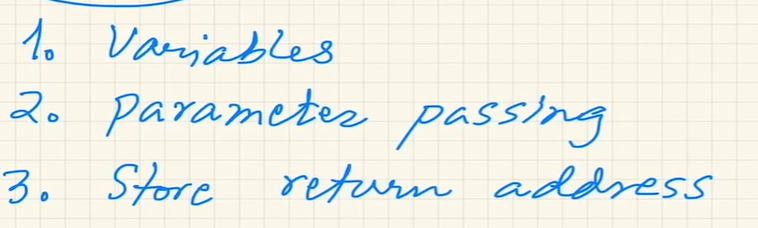 1. Variables
2. Parameter passing
3. Store return address